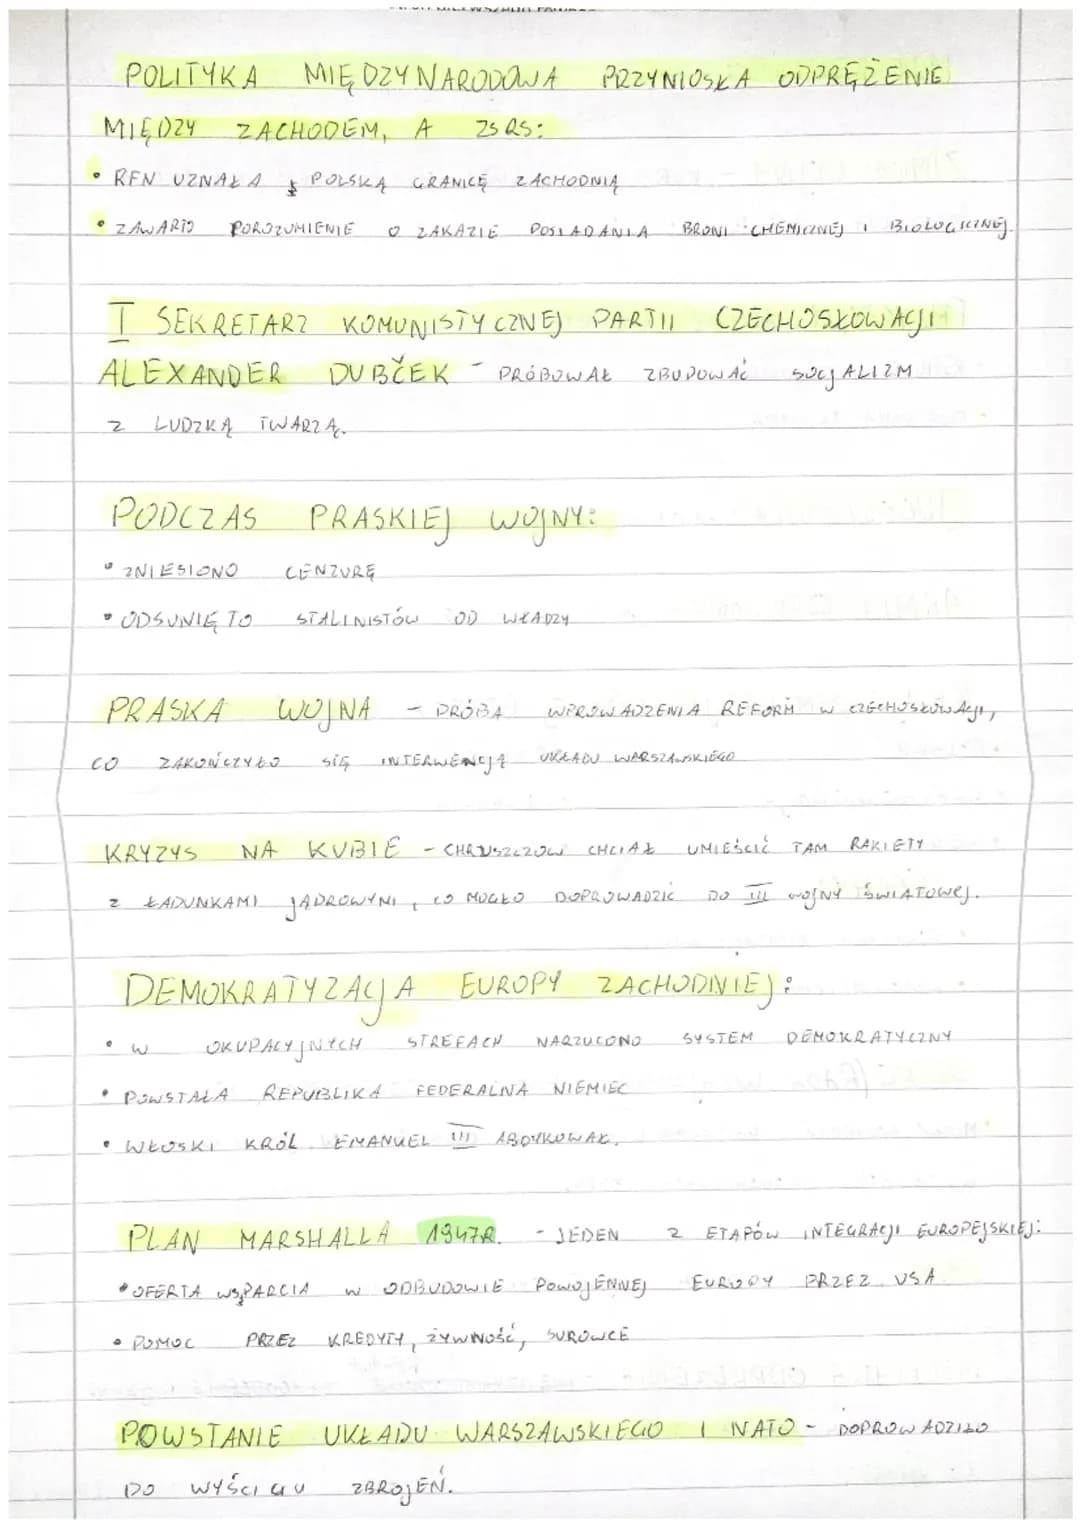 POLITYKA MIĘDZYNARODOWA PRZYNIOSŁA ODPRĘŻENIE
MIĘDZY ZACHODEM, A ZSRS:
• RFN UZNAŁA POLSKĄ GRANICĘ ZACHODNIĄ
• ZAWARTO POROZUMIENIE O ZAKAZIE POSIADANIA BRONI CHEMICZNEJ I BIOLOGICZNEJ.
I SEKRETARZ KOMUNISTYCZNEJ PARTII CZECHOSŁOWACJI
ALEXANDER DUBČEK - PRÓBOWAŁ ZBUDOWAĆ SOCJALIZM
Z LUDZKĄ TWARZĄ.
PODCZAS PRASKIEJ WOJNY:
• ZNIESIONO CENZURĘ
• ODSUNIĘTO STALINISTÓW OD WŁADZY
PRASKA WOJNA - PRÓBA WPROWADZENIA REFORM W CZECHOSŁOWACJI,
CO ZAKOŃCZYŁO SIĘ INTERWENCJĄ UKŁADU WARSZAWSKIEGO
KRYZYS NA KUBIE - CHRUSZCZOW CHCIAŁ UMIEŚCIĆ TAM RAKIETY
Z ŁADUNKAMI JĄDROWYMI, CO MOGŁO DOPROWADZIĆ DO III WOJNY ŚWIATOWEJ.
DEMOKRATYZACJA EUROPY ZACHODNIEJ:
• W OKUPACYJNYCH STREFACH NARZUCONO SYSTEM DEMOKRATYCZNY
• POWSTAŁA REPUBLIKA FEDERALNA NIEMIEC
• WŁOSKI KRÓL EMANUEL III ABDYKOWAŁ.
PLAN MARSHALLA 1947R. - JEDEN Z ETAPÓW INTEGRACJI EUROPEJSKIEJ:
• OFERTA WSPARCIA W ODBUDOWIE POWOJENNEJ EUROPY PRZEZ USA
• POMOC PRZEZ KREDYTY, ŻYWNOŚĆ, SUROWCE
POWSTANIE UKŁADU WARSZAWSKIEGO I NATO - DOPROWADZIŁO
DO WYŚCIGU ZBROJEŃ.